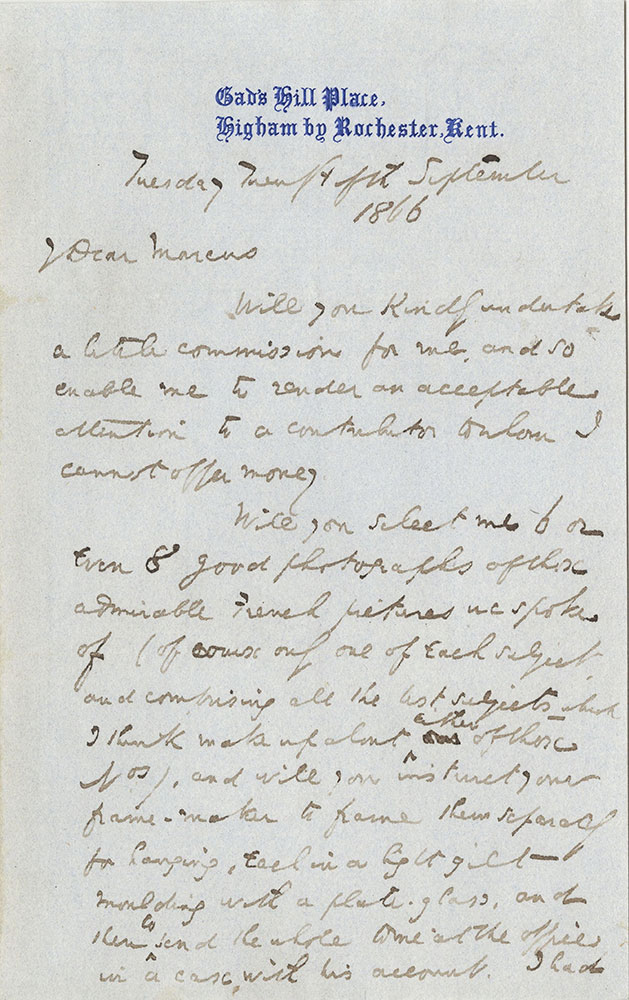 Gad's Hill Place,
Higham by Rochester, Kent.
Tuesday Twenty fifth September
1866
My Dear Marcus
Will you kindly undertake
a little commission for me, and so
enable me to render an acceptable
attention to a contributor to whom I
cannot offer money
Will you select me 6 or
Even 8 good photographs of those
admirable French pictures we spoke
of (of course only one of Each subject,
and comprising all the best subjects which
I think make up about either of those
Nos), and will you instruct your
frame-maker to frame them separately
for hanging, Each in a light gilt
moulding with a plate-glass, and
then to send the whole to me at the office
in a case, with his account. I had